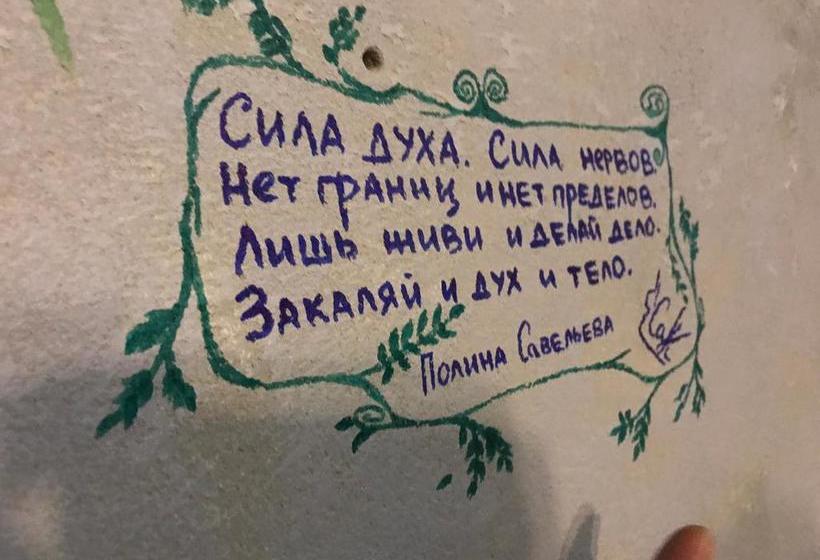 Сила духа. Сила нервов.
Нет границ и нет пределов.
Лишь живи и делай дело.
Закаляй и дух и тело.
Полина Савельева